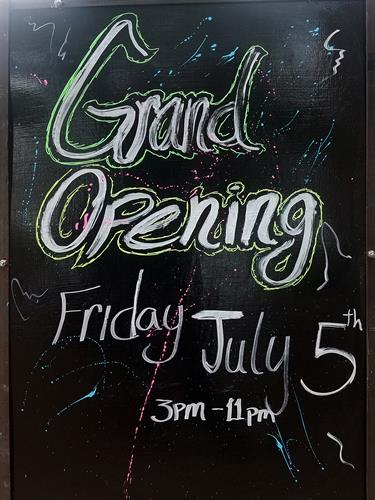 Grand
Opening
Friday July 5th
3pm - 11pm